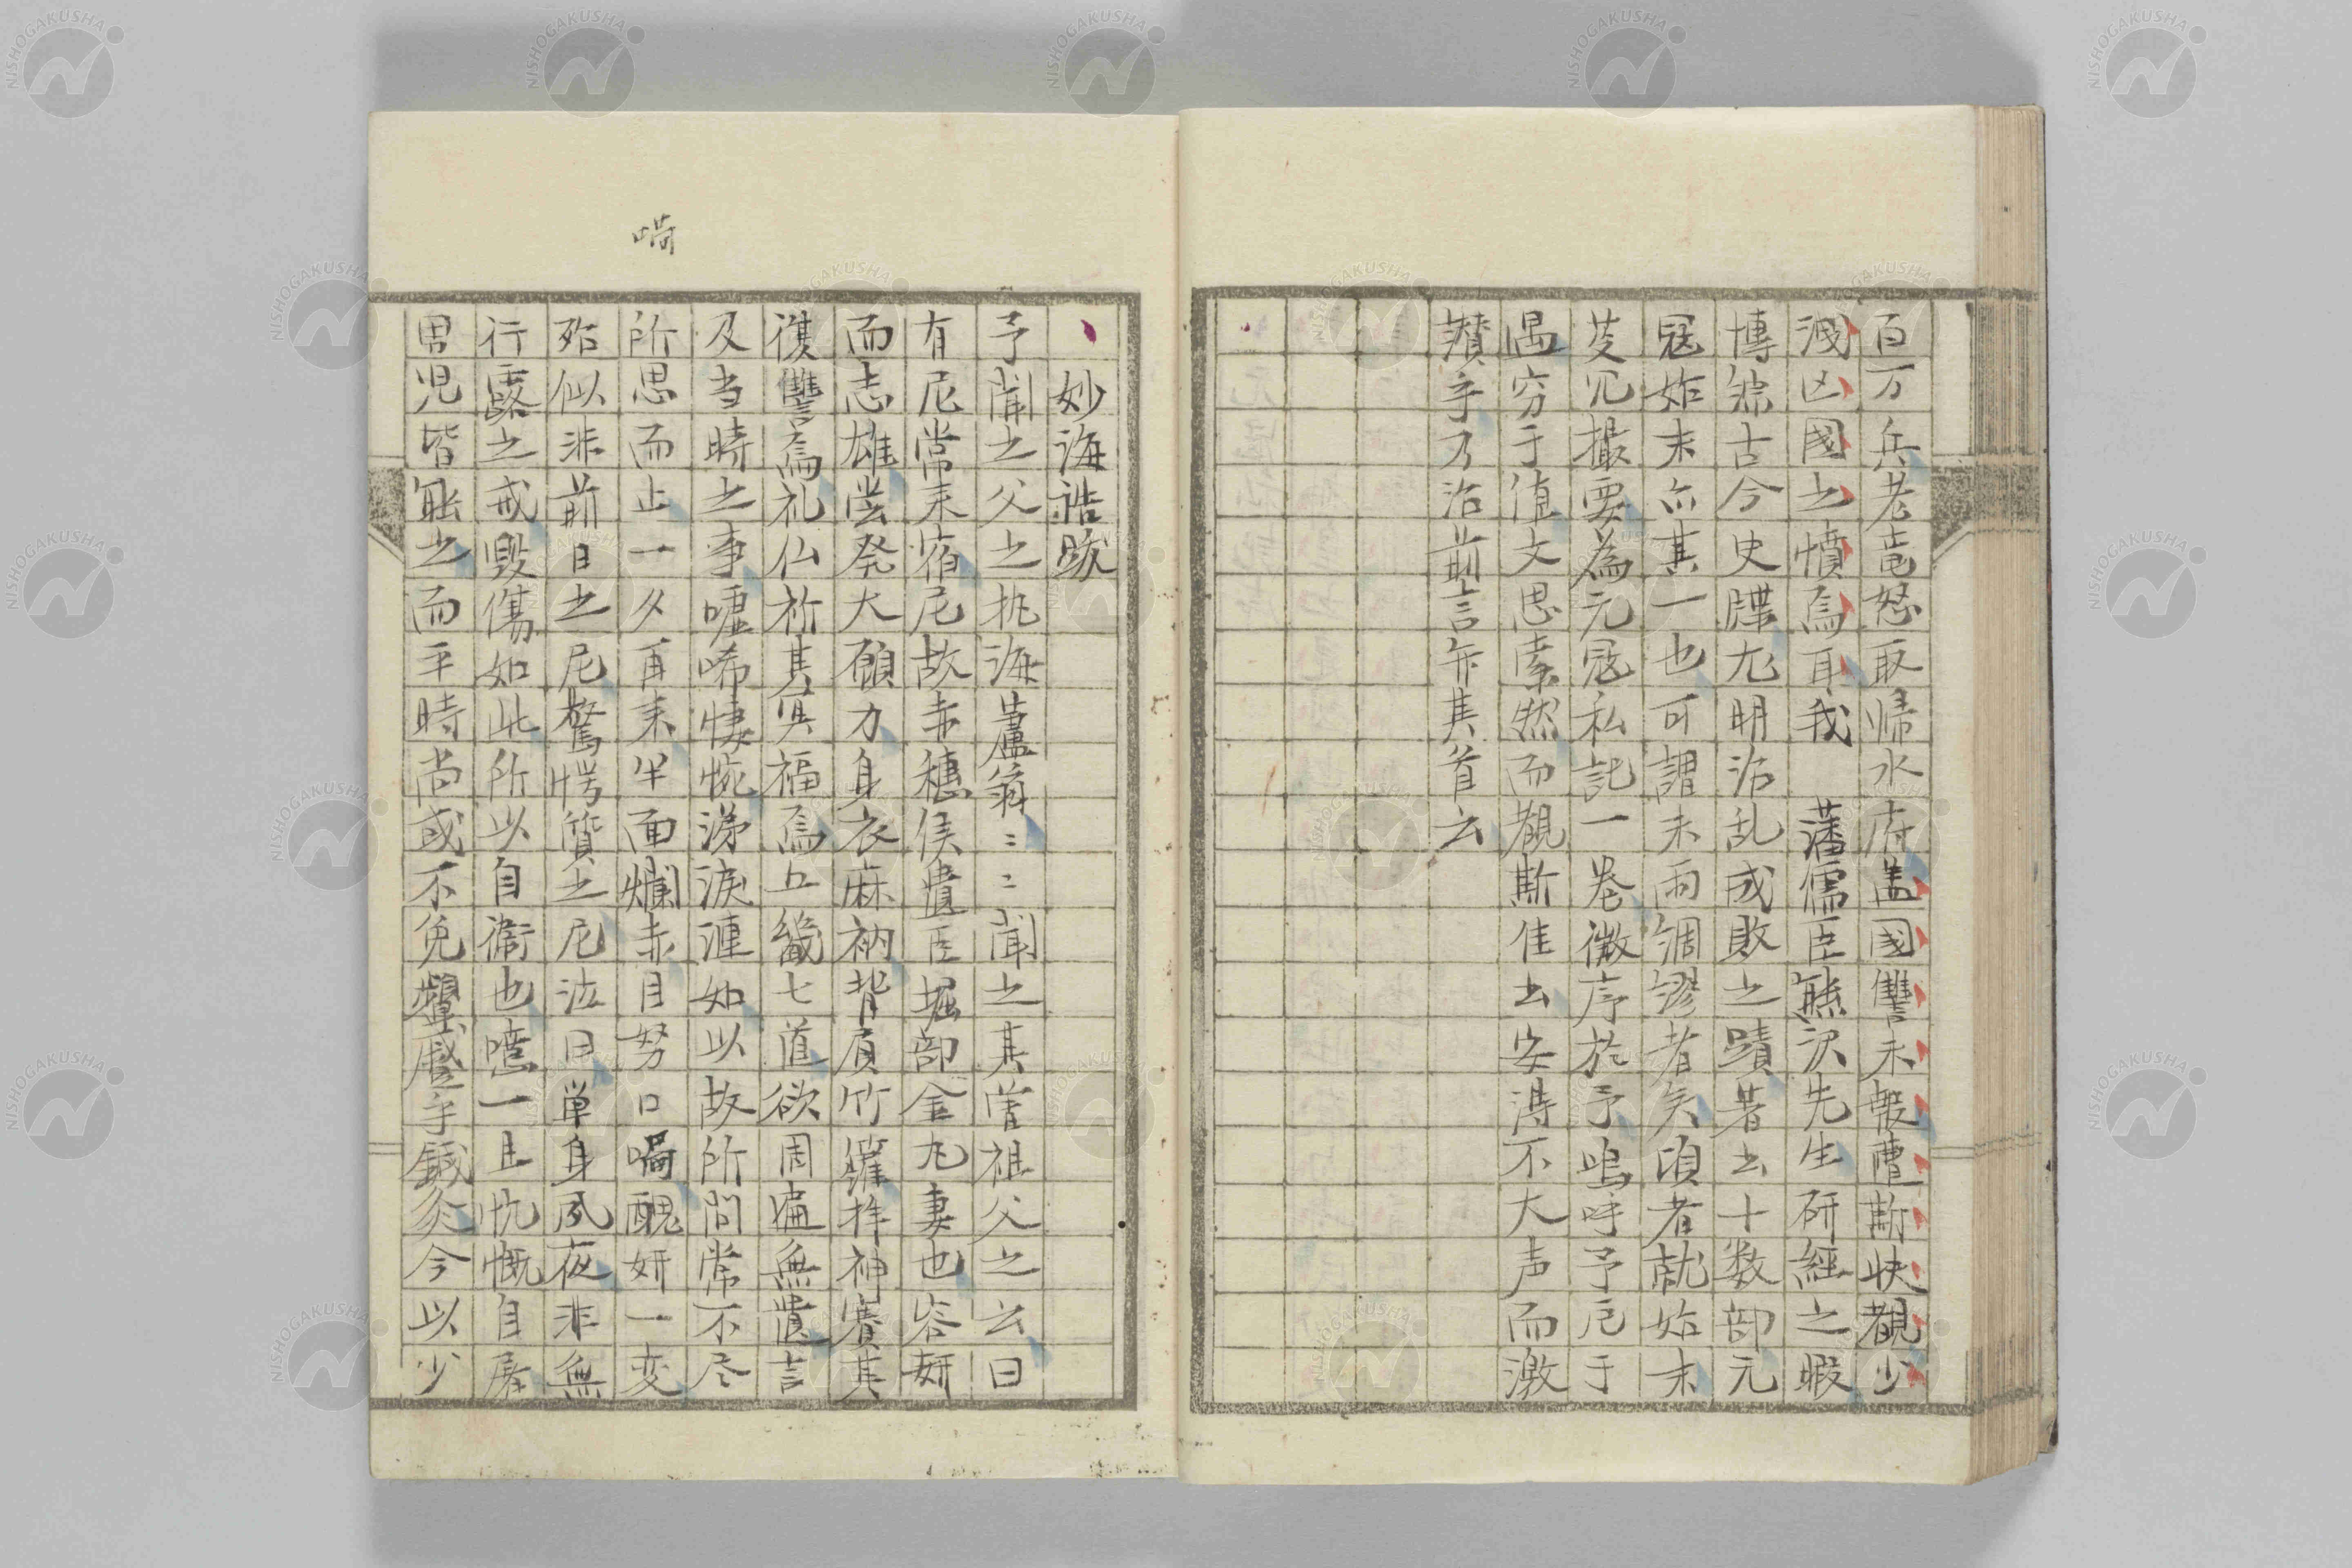 百万兵老竜怒取帰水府盖國讐未報遭斯快覩少
洩凶國之憤焉耳我　藩儒臣熊沢先生研經之暇
博綜古今史牒尤明治乱成敗之蹟著书十数部元
冦始末亦其一也可謂未雨綢繆者矣頃者就始末
芟冗撮要為元冦私記一卷徴序於予嗚呼予戹于
遇窮于值文思索然而觀斯佳书安得不大声而激
讃乎乃治前言弁其首云
妙海誥跋
予聞之父之執海蘆翁〻〻聞之其嘗祖父之云曰
有尼常来宿尼故赤穗侯遺臣堀部金丸妻也容妍
而志雄嘗発大願力身衣麻衲背肩竹籮拝神賽其
復讐焉礼仏祈其冥福焉五畿七道欲周遍無遺言
及当時之事嘘唏悽惋涕淚漣如以故所問常不尽
所思而止一夕再来半面爛赤目努口喎醜妍一変
殆似非前日之尼驚愕質之尼泣曰単身夙夜非無
行露之戒毀傷如此所以自衞也噫一旦忼慨自屠
男児皆能之而平時尚或不免顰蹙乎鍼灸今以少
喎
NISHOGAKUSHA